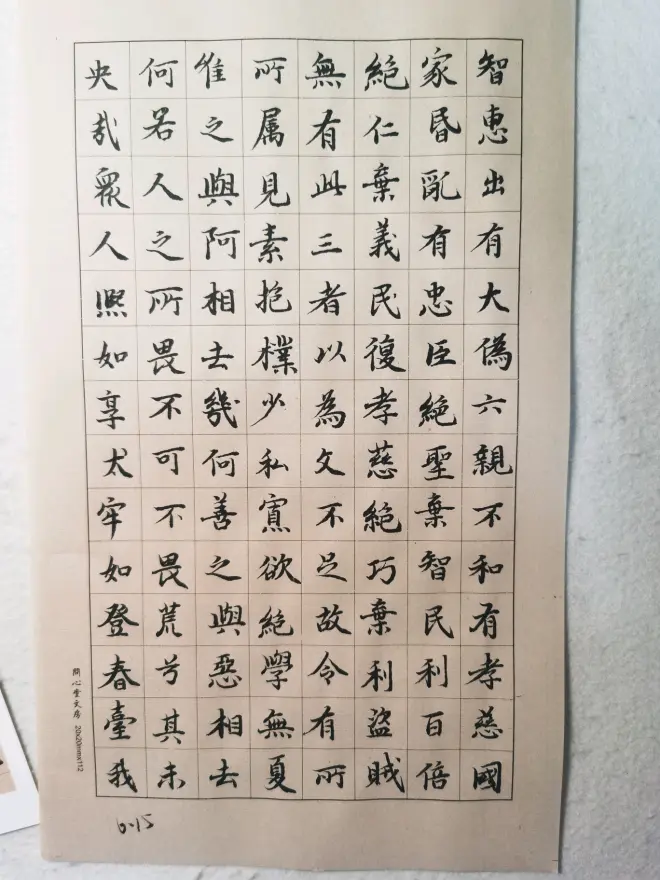 智惠出有大偽六親不和有孝慈國
家昏亂有忠臣絕聖棄智民利百倍
絕仁棄義民復孝慈絕巧棄利盜賊
無有此三者以為文不足故令有所
所属見素抱樸少私寡欲絕學無夏
唯之與阿相去幾何善之與惡相去
何若人之所畏不可不畏荒兮其未
央哉眾人熙如享太牢如登春臺我
問心堂文房 20x20mmx112
6.15